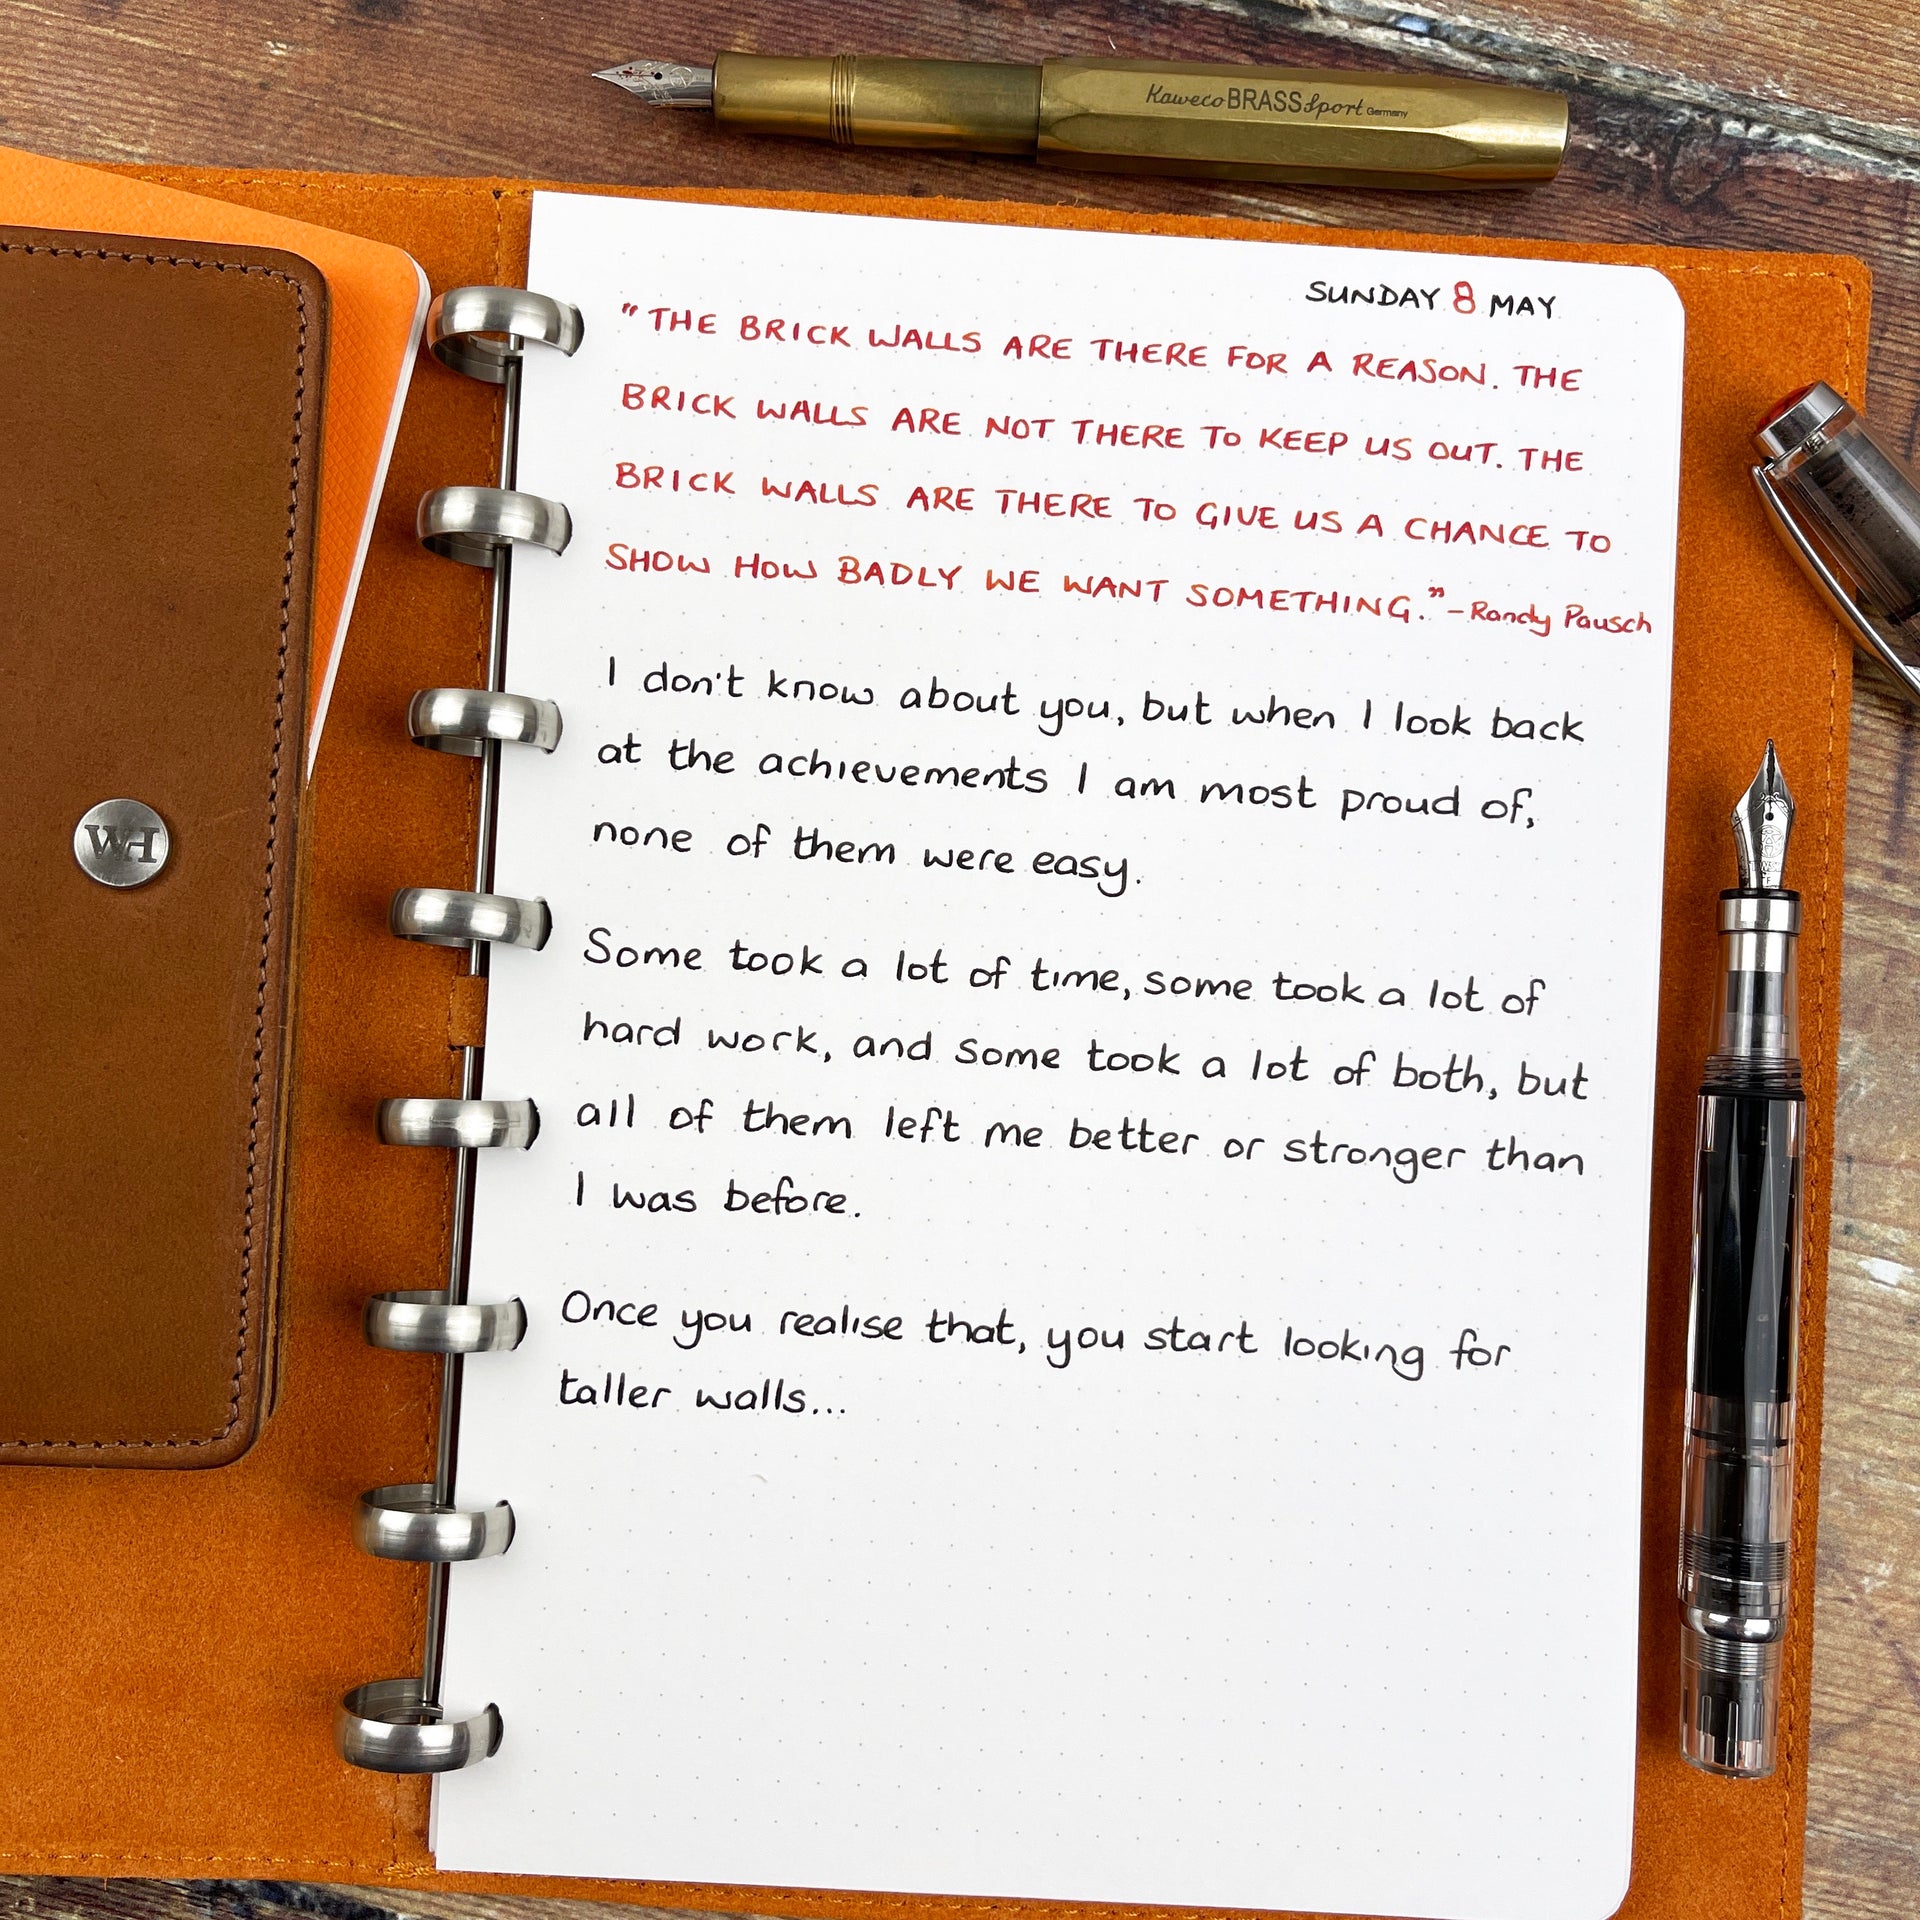 Kaweco BRASS Sport Germany
SUNDAY 8 MAY
"THE BRICK WALLS ARE THERE FOR A REASON. THE
BRICK WALLS ARE NOT THERE TO KEEP US OUT. THE
BRICK WALLS ARE THERE TO GIVE US A CHANCE TO
SHOW HOW BADLY WE WANT SOMETHING." - Randy Pausch
I don't know about you, but when I look back
at the achievements I am most proud of,
none of them were easy.
Some took a lot of time, some took a lot of
hard work, and some took a lot of both, but
all of them left me better or stronger than
I was before.
Once you realise that, you start looking for
taller walls...
WH